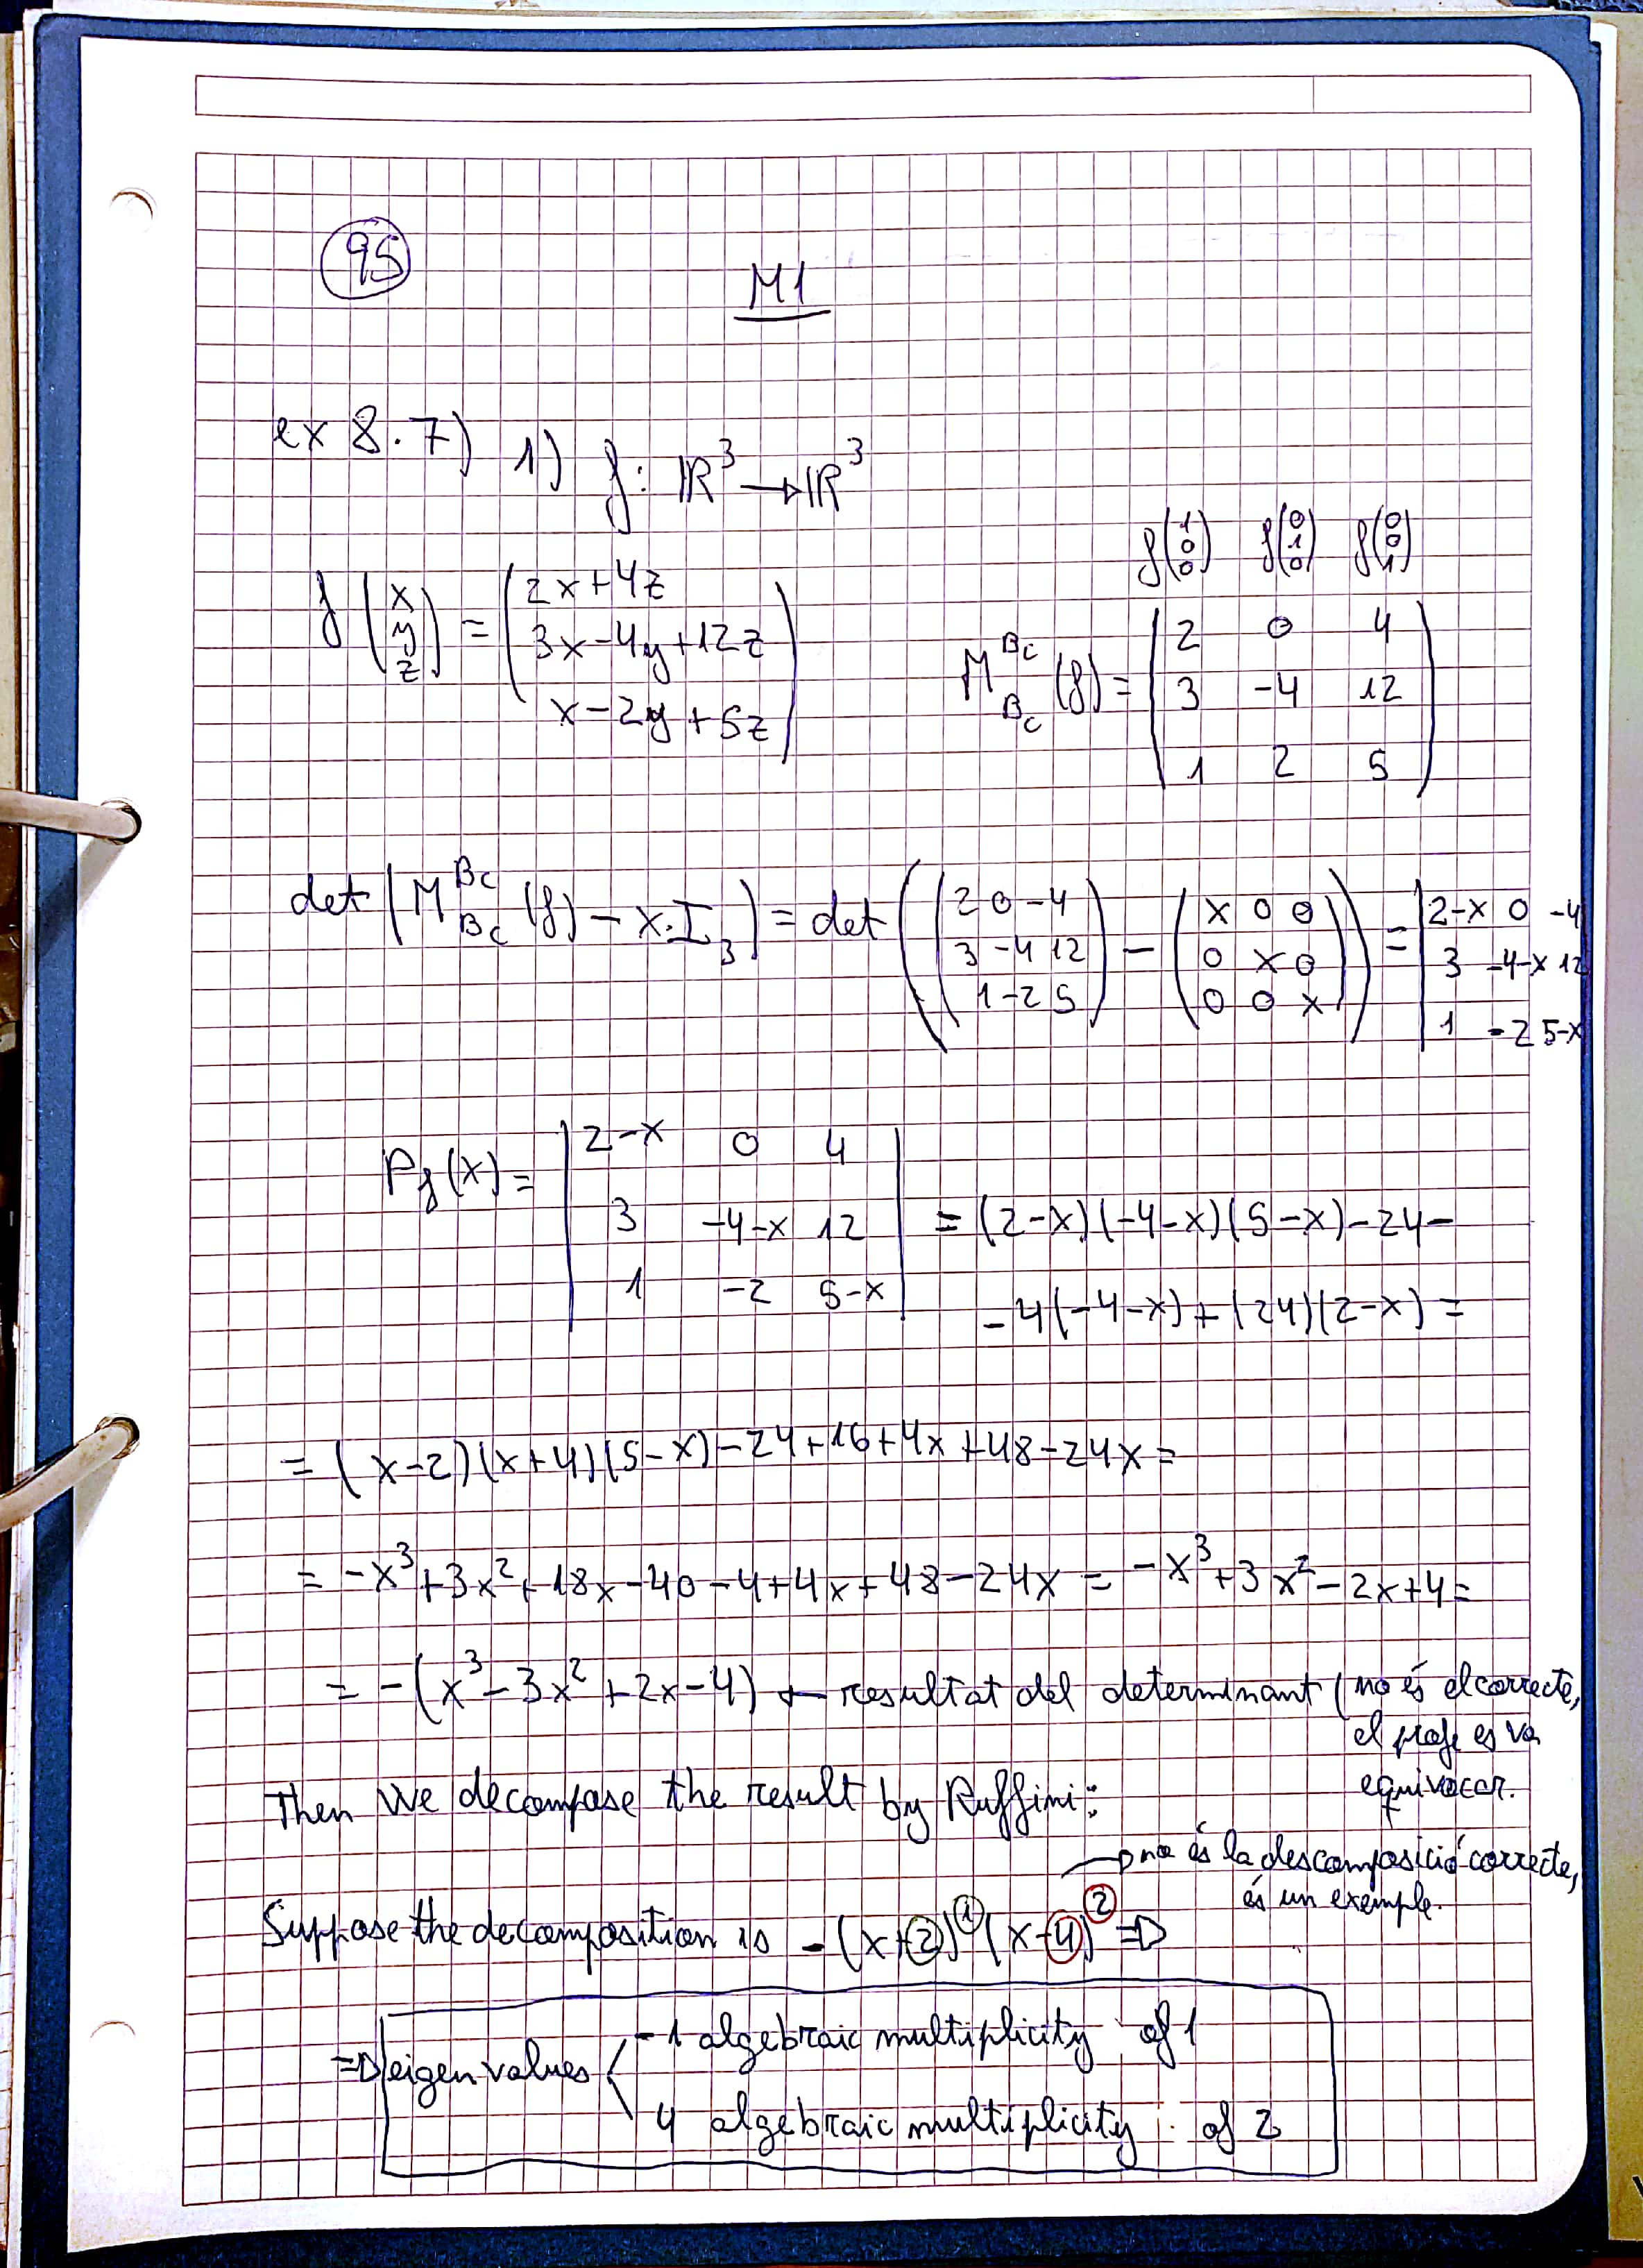 95
M1
ex 8.7) 1) f: ℝ³ → ℝ³
f(1 0 0) f(0 1 0) f(0 0 1)
f (x y z) = (2x+4z
3x-4y+12z
x-2y+5z)
M_Bc^Bc (f) = (2 0 4
3 -4 12
1 2 5)
det (M_Bc^Bc (f) - x·I₃) = det ((2 0 -4
3 -4 12
1 -2 5) - (x 0 0
0 x 0
0 0 x)) = |2-x 0 -4
3 -4-x 12
1 -2 5-x
Pf(x) = |2-x 0 4
3 -4-x 12
1 -2 5-x| = (2-x)(-4-x)(5-x)-24-
-4(-4-x)+(24)(2-x) =
= (x-2)(x+4)(5-x)-24+16+4x+48-24x =
= -x³+3x²+18x-40-4+4x+48-24x = -x³+3x²-2x+4 =
= -(x³-3x²+2x-4) ← resultat del determinant (no és el correcte,
el profe es va
equivocar.
Then we decompose the result by Ruffini:
→ no és la descomposició correcte,
és un exemple.
Suppose the decomposition is -(x+2)¹(x-4)² ⇒
⇒ eigenvalues < -1 algebraic multiplicity of 1
4 algebraic multiplicity of 2